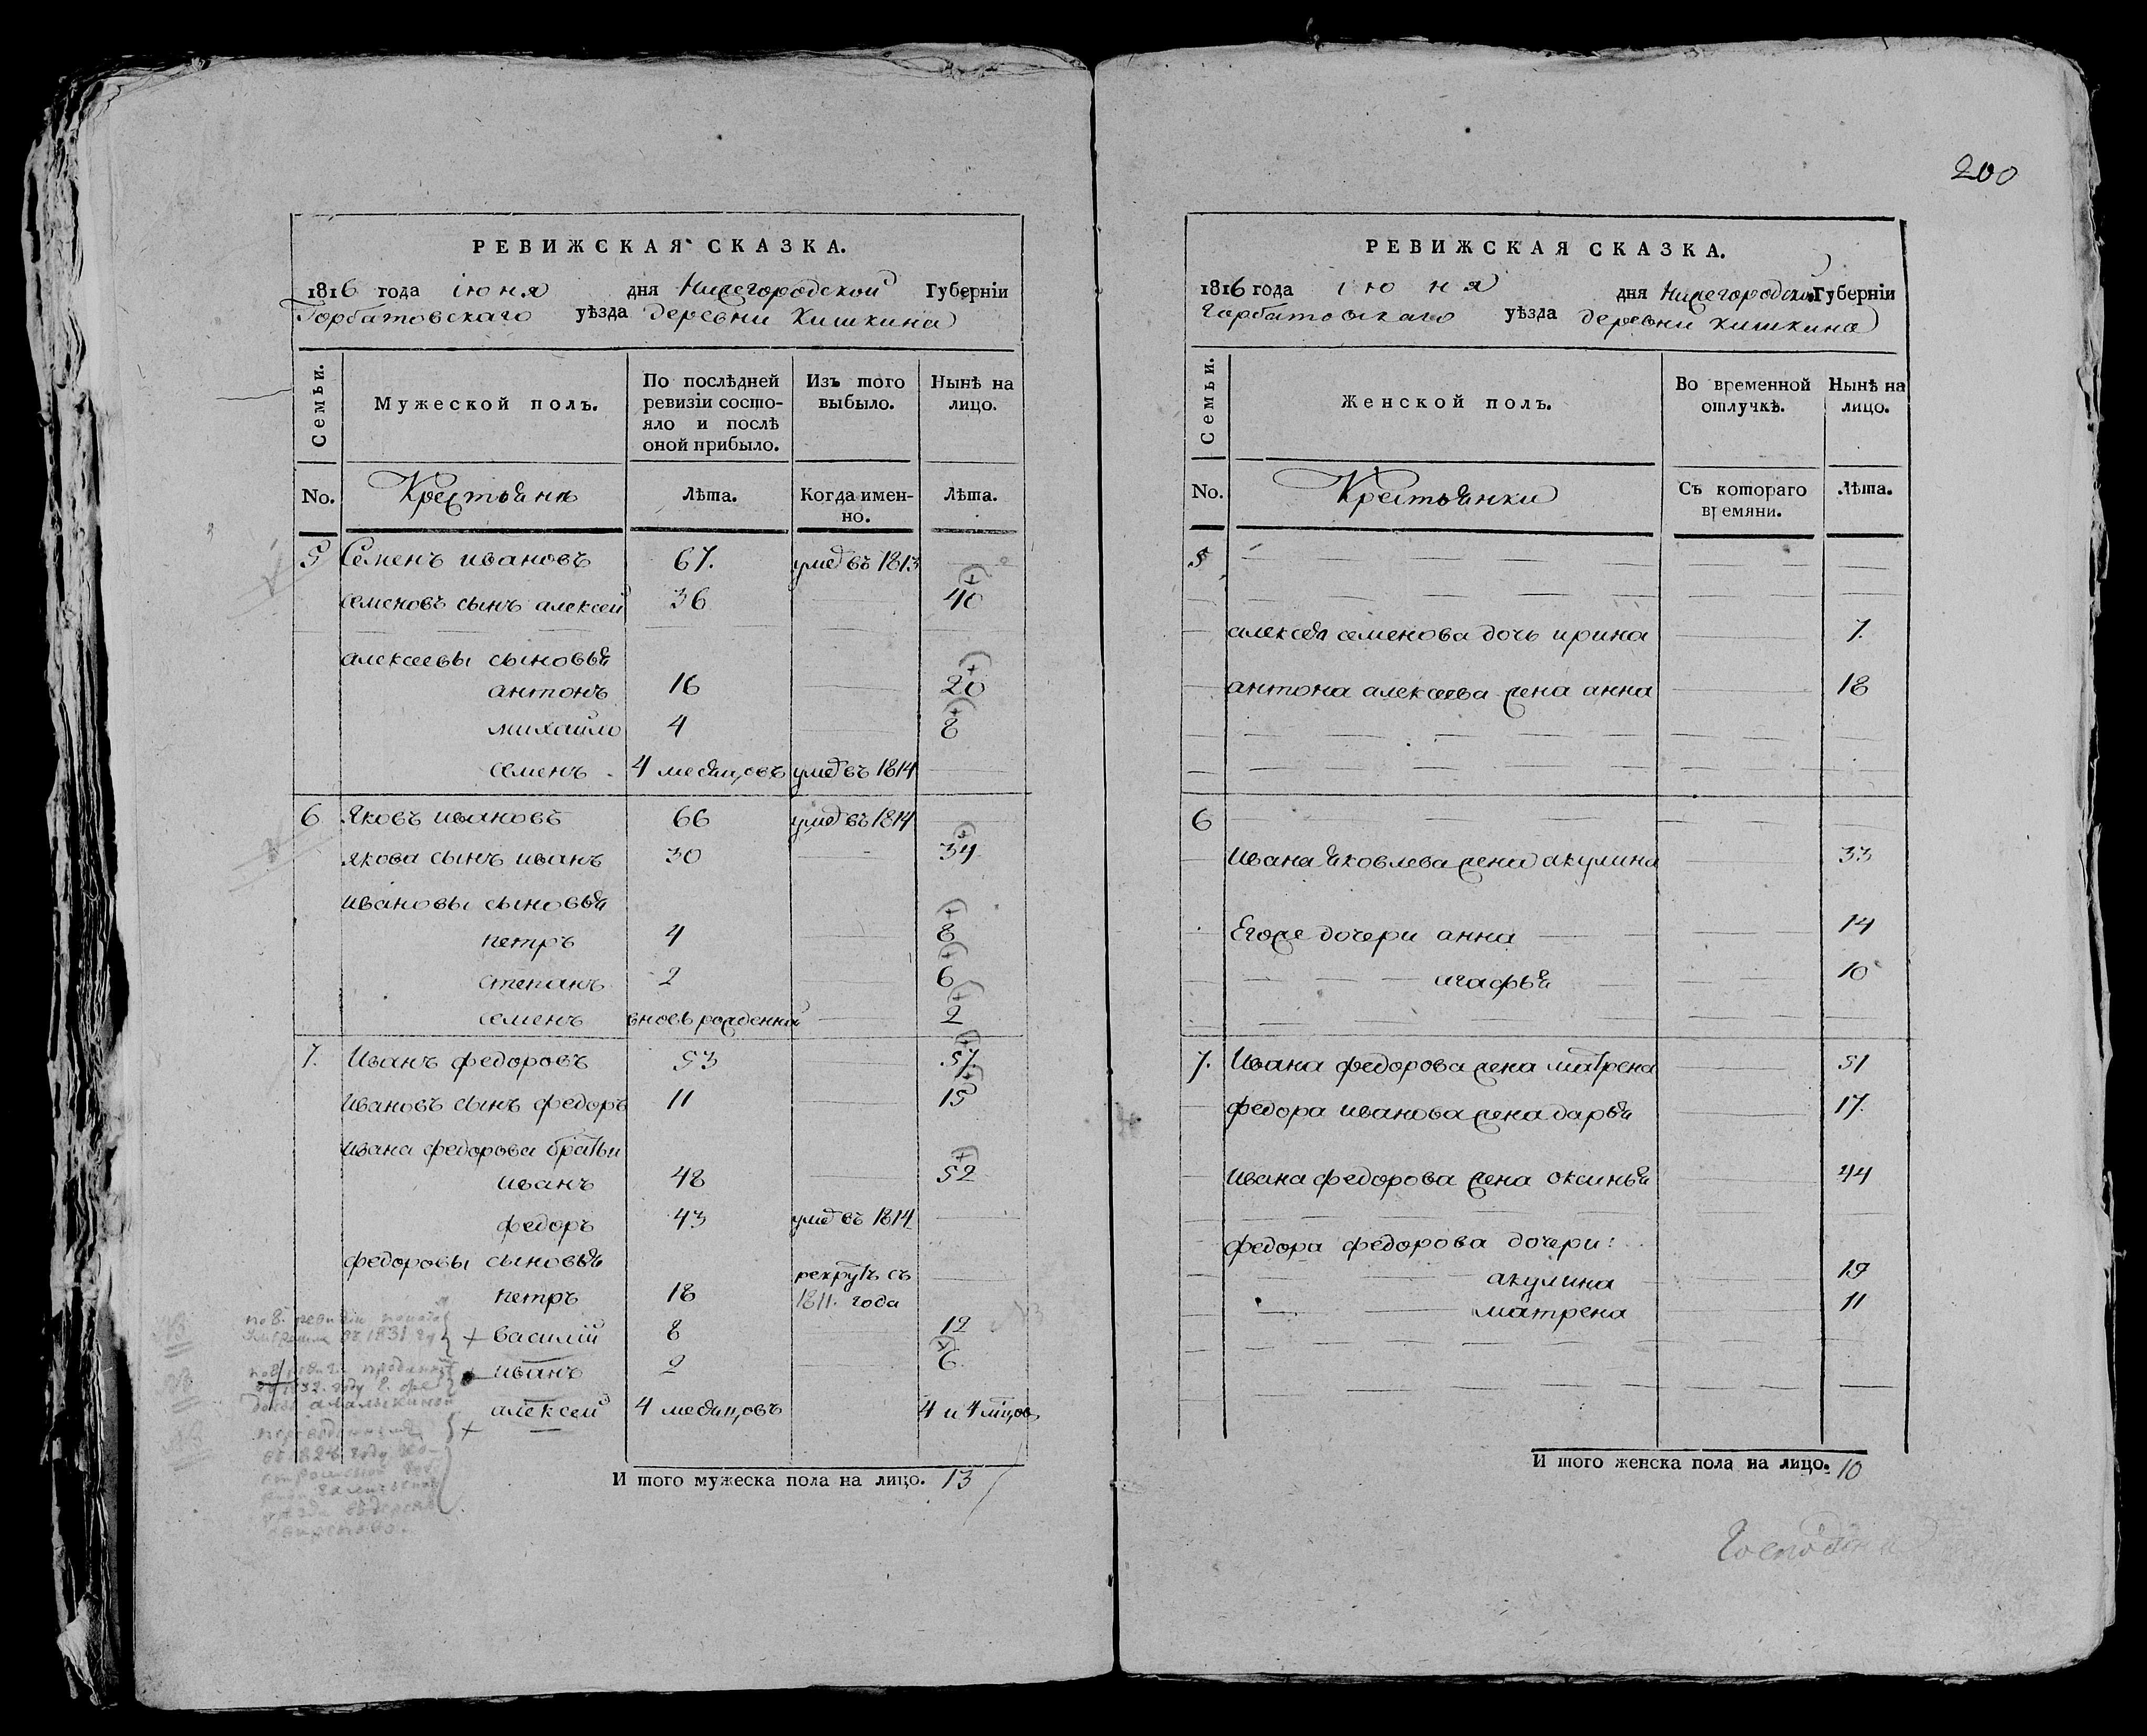 200
РЕВИЖСКАЯ СКАЗКА.
1816 года іюня дня Нижегородской Губерніи
Горбатовскаго уѣзда деревни Кишкина
Семьи.
Мужеской полъ.
По послѣдней ревизіи состо-
яло и послѣ
оной прибыло.
Изъ того
выбыло.
Нынѣ на
лицо.
No.
Крестьянѣ
Лѣта.
Когда имен-
но.
Лѣта.
5 Семенъ ивановъ 67. умеръ въ 1813
семеновъ сынъ алексей 36 40
алексеевы сыновья
антонъ 16 20
михайло 4 8
семенъ 4 месяцовъ умеръ въ 1814
6 Яковъ ивановъ 66 умеръ въ 1814
якова сынъ иванъ 30 34
ивановы сыновья
петръ 4 8
степанъ 2 6
семенъ вновь рожденной 2
7. Иванъ федоровъ 53 57.
ивановъ сынъ федоръ 11 15
ивана федорова братьи
иванъ 48 52
федоръ 43 умеръ въ 1814
федоровы сыновья
петръ 18 рекрутъ съ
1811. года
василій 8 12
иванъ 2 6
алексей 4 месяцовъ 4 и 4 мцовъ
И того мужеска пола на лицо. 13
РЕВИЖСКАЯ СКАЗКА.
1816 года іюня дня Нижегородской Губерніи
Горбатовскаго уѣзда деревни кишкина
Семьи.
Женской полъ.
Во временной
отлучкѣ.
Нынѣ на
лицо.
No.
Крестьянки
Съ котораго
времяни.
Лѣта.
5
алексея семенова дочь ирина 7.
антона алексеева жена анна 18
6
ивана яковлева жена акулина 33
Егоже дочери анна 14
агафья 10
7. Ивана федорова жена матрена 51
федора иванова жена дарья 17.
ивана федорова жена оксинья 44
федора федорова дочери:
акулина 19
матрена 11
И того женска пола на лицо. 10